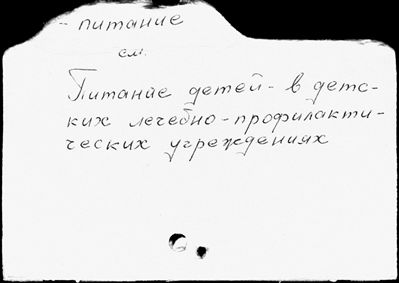 - питание
см.
Питание детей - в детс-
ких лечебно-профилакти-
ческих учреждениях